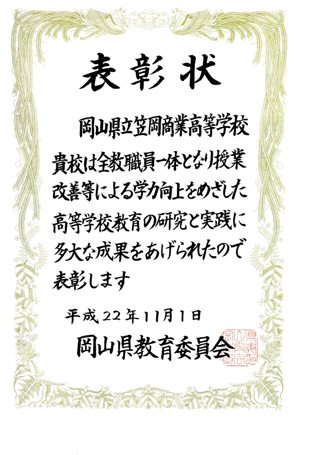 表彰状
岡山県立笠岡商業高等学校
貴校は全教職員一体となり授業
改善等による学力向上をめざした
高等学校教育の研究と実践に
多大な成果をあげられたので
表彰します
平成22年11月1日
岡山県教育委員会